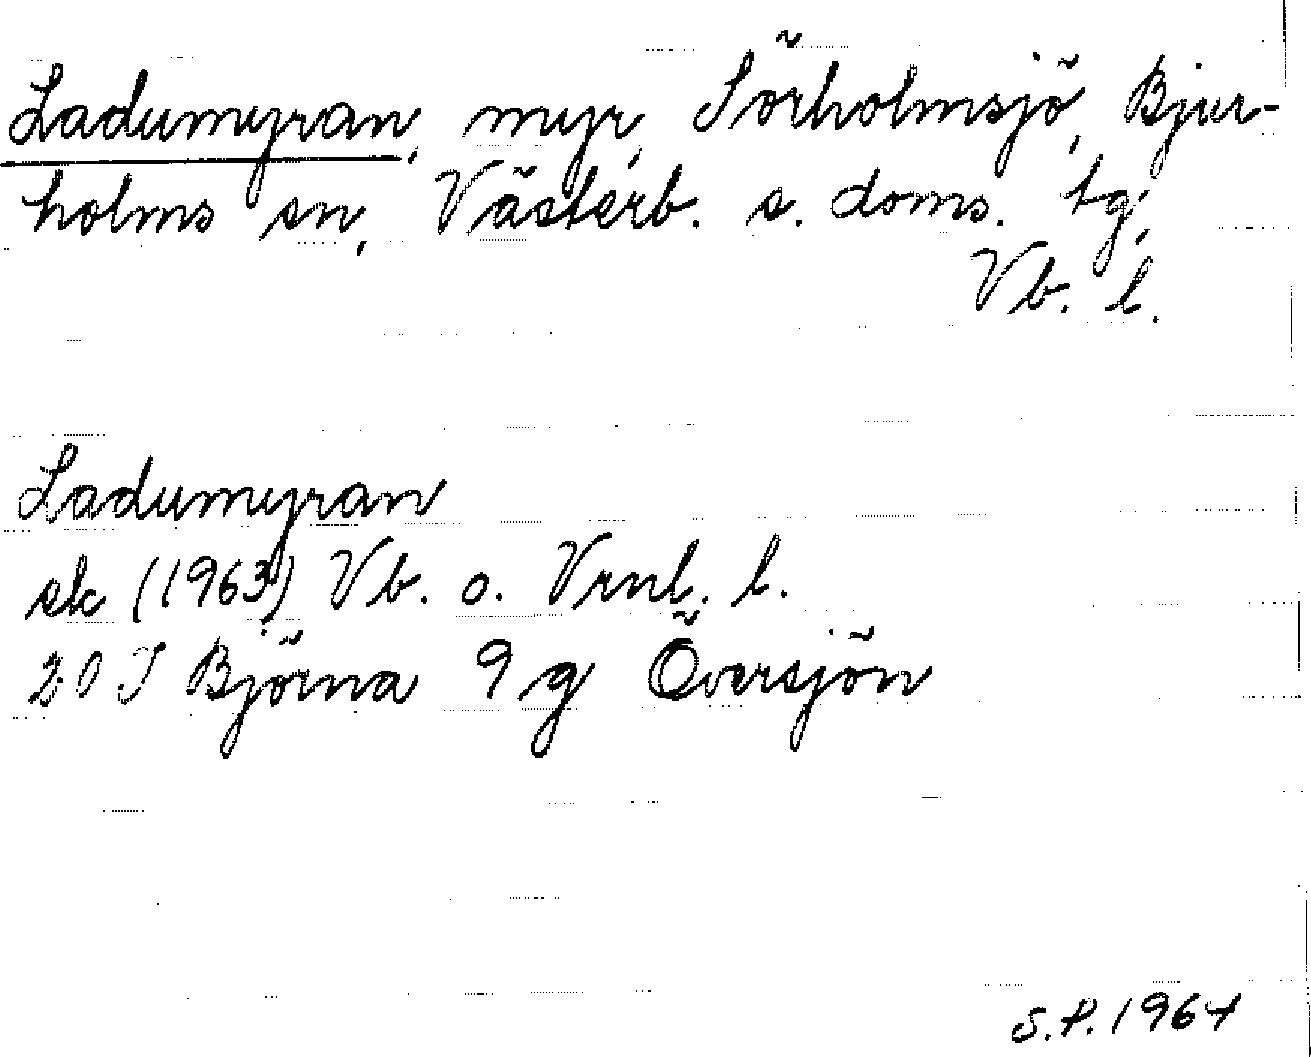 Ladumyran, myr, Sörholmsjö, Bjur-
holms sn, Västerb. s. doms. tg,
Vb. l.
Ladumyran
sk (1963) Vb. o. Vrnl. l.
20 I Björna 9 g Översjön
S.P. 1964